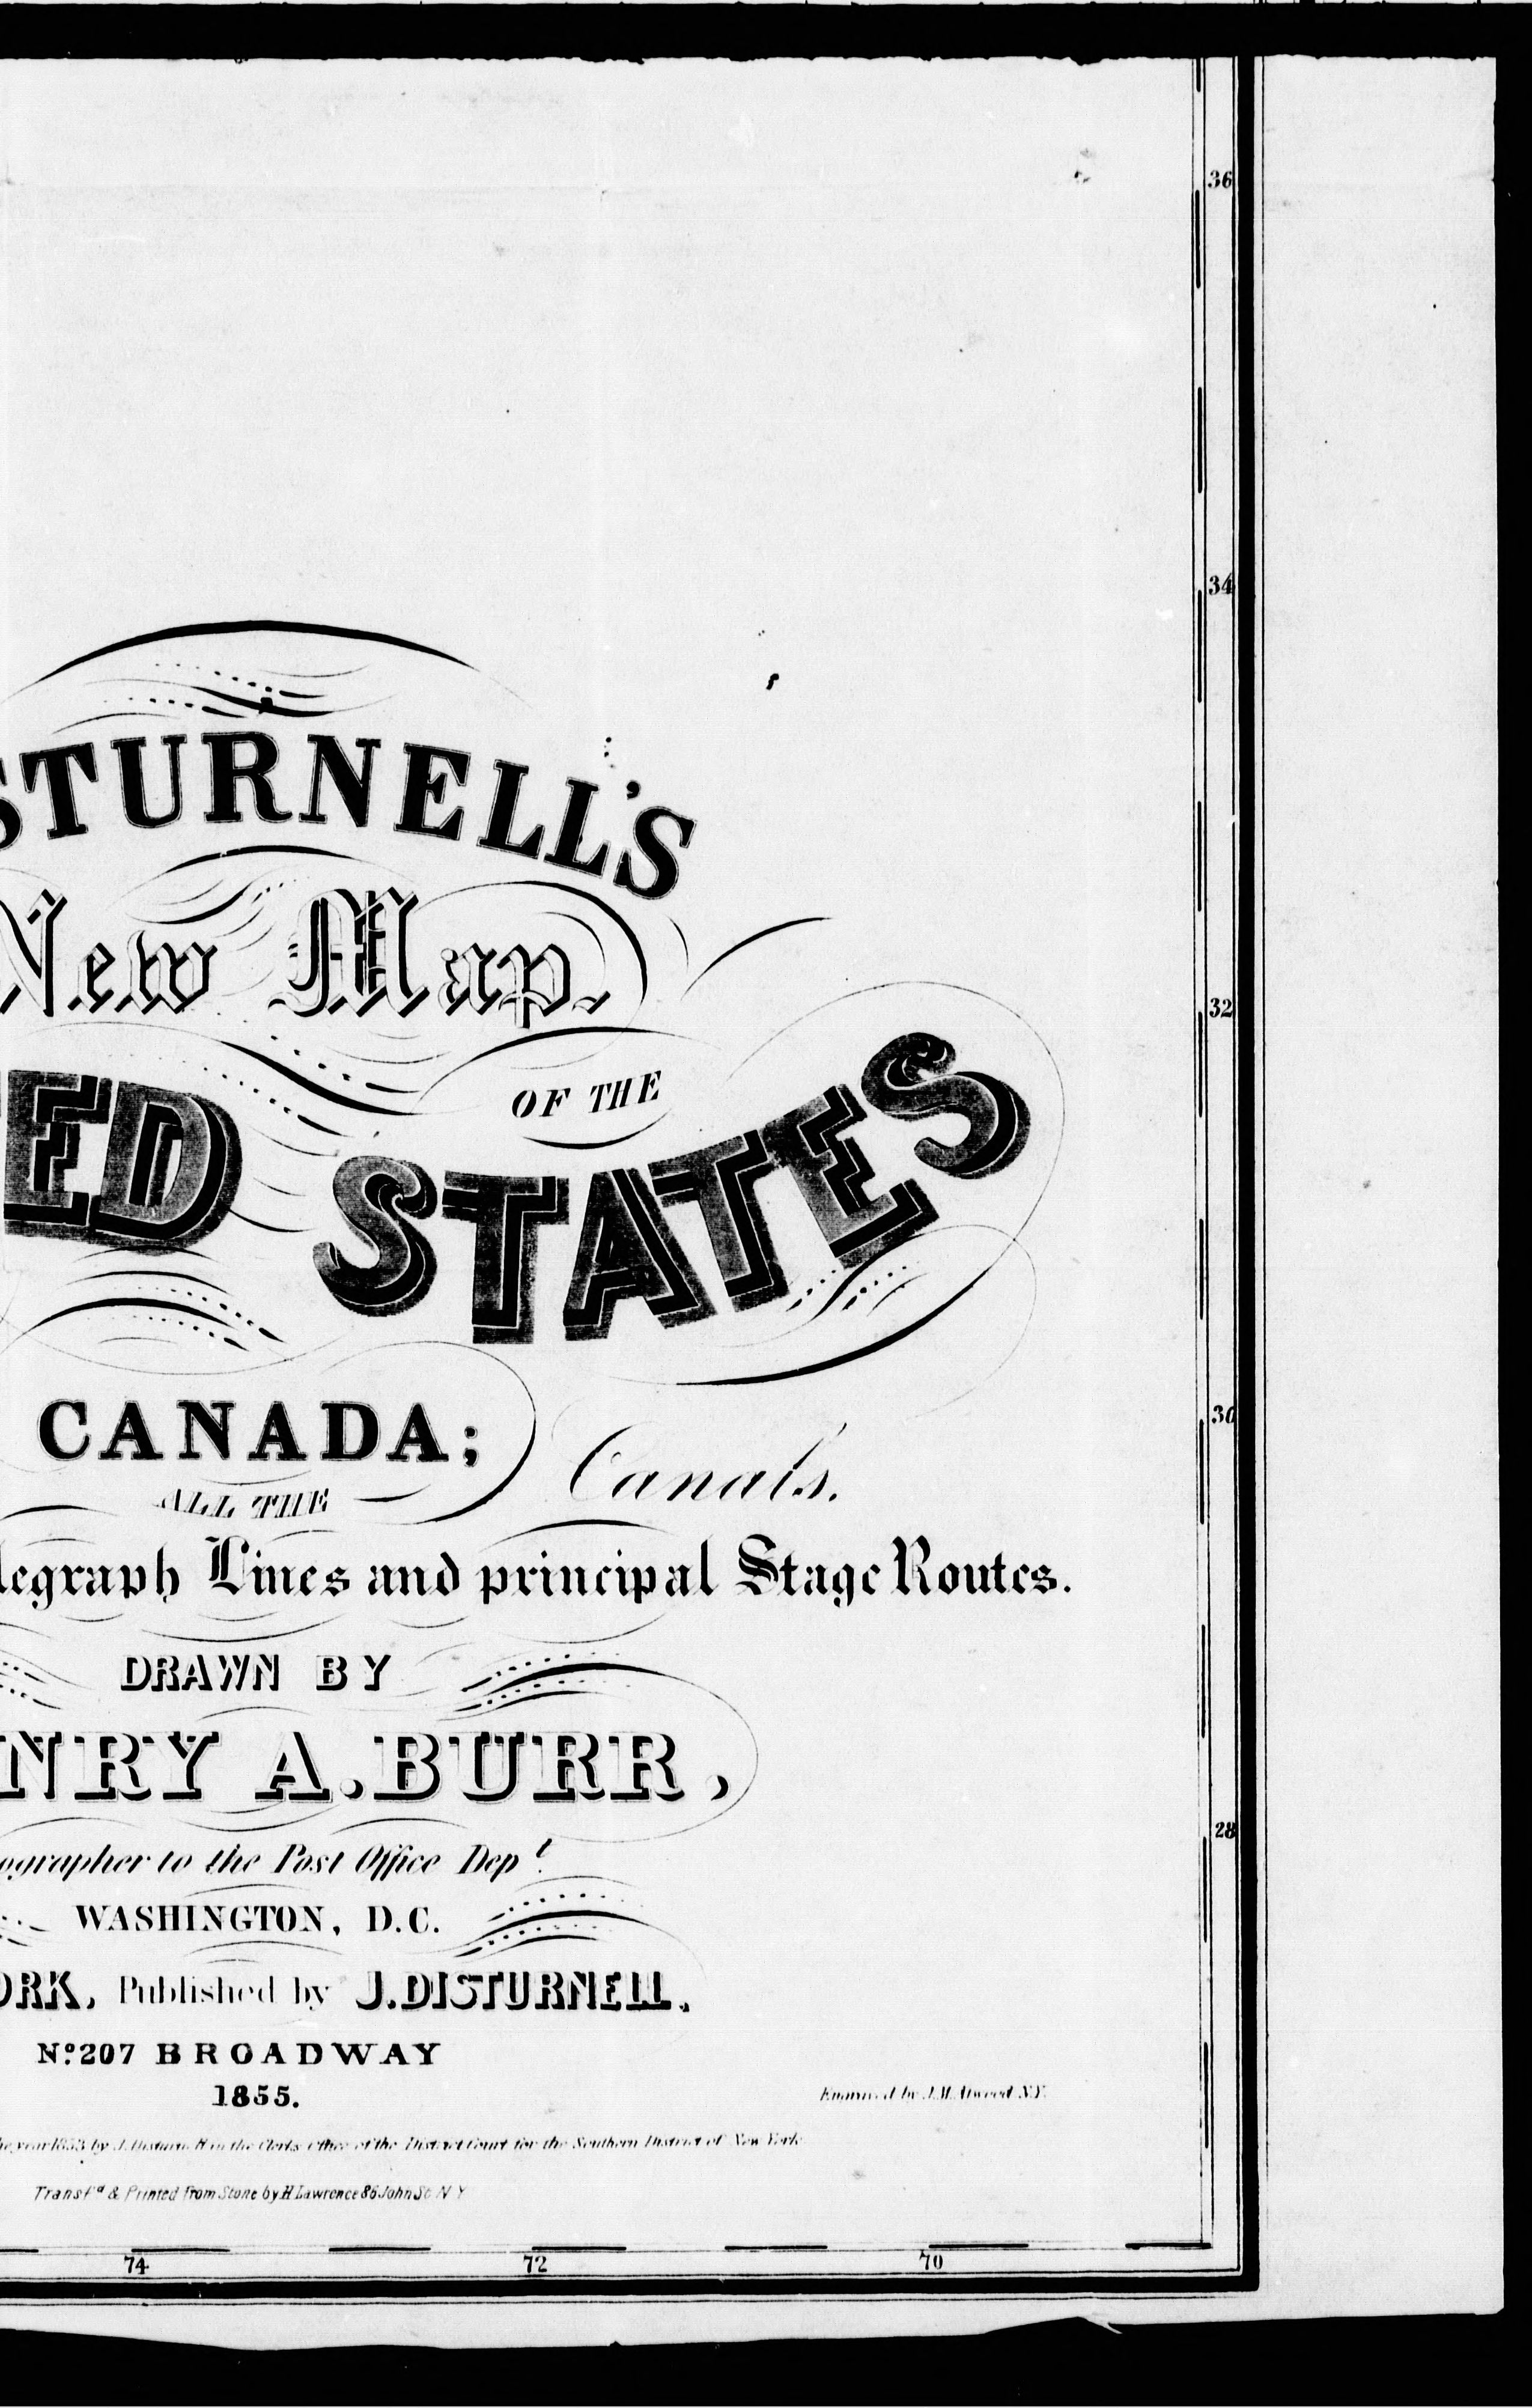 36
34
STURNELL'S
New Map
32
OF THE
ED STATES
30
CANADA;
ALL THE
Canals.
legraph Lines and principal Stage Routes.
DRAWN BY
NRY A. BURR,
28
ographer to the Post Office Dep.t
WASHINGTON, D.C.
ORK, Published by J. DISTURNELL.
No. 207 BROADWAY
1855.
Engraved by J.M. Atwood N.Y.
he year 1853 by J. Disturnell in the Clerks Office of the District Court for the Southern District of New York
Transf'd & Printed from Stone by H Lawrence 86 John St N Y
74 72 70